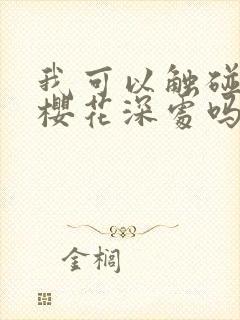 我可以触碰
樱花深处吗
金榈